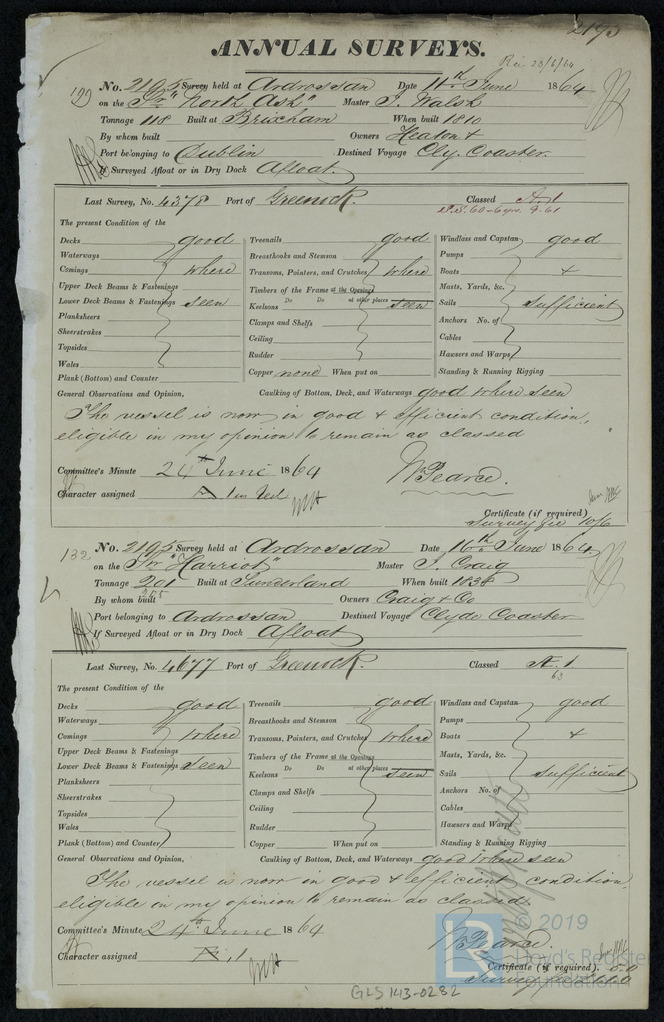 2195
ANNUAL SURVEYS.
Rec 23/6/64
129 No. 2195 Survey held at Ardrossan Date 11th June 1864
on the Sr "North Ash" Master T. Walsh
Tonnage 118 Built at Brixham When built 1810
By whom built Owners Heaton &
Port belonging to Dublin Destined Voyage Cly. Coaster.
If Surveyed Afloat or in Dry Dock Afloat.
Last Survey, No. 4378 Port of Greenock. Classed A.1
60-6yrs 9-61
The present Condition of the
Decks good Treenails good Windlass and Capstan good
Waterways Breasthooks and Stemson Pumps
Comings where Transoms, Pointers, and Crutches where Boats &
Upper Deck Beams & Fastenings Timbers of the Frame at the Openings Masts, Yards, &c.
Lower Deck Beams & Fastenings seen Do Do at other places Sails sufficient
Keelsons seen
Planksheers Clamps and Shelfs Anchors No. of
Sheerstrakes Ceiling Cables
Topsides Rudder Hawsers and Warps
Wales Copper none When put on Standing & Running Rigging
Plank (Bottom) and Counter
General Observations and Opinion, Caulking of Bottom, Deck, and Waterways good where seen
The vessel is now in good & efficient condition,
eligible in my opinion to remain as classed
Committee's Minute 24th June 1864 Wm Pearce.
Character assigned A 1 in Red
Certificate (if required)
Survey fee 10/6
132 No. 2195 Survey held at Ardrossan Date 16th June 1864.
on the Sr "Harriot" Master J. Craig
Tonnage 201 Built at Sunderland When built 1838
205
By whom built Owners Craig & Co
Port belonging to Ardrossan Destined Voyage Clyde Coaster
If Surveyed Afloat or in Dry Dock Afloat
Last Survey, No. 4677 Port of Greenock. Classed Æ.1
63
The present Condition of the
Decks good Treenails good Windlass and Capstan good
Waterways Breasthooks and Stemson Pumps
Comings where Transoms, Pointers, and Crutches where Boats &
Upper Deck Beams & Fastenings Timbers of the Frame at the Openings Masts, Yards, &c.
Lower Deck Beams & Fastenings seen Do Do at other places
Keelsons seen Sails sufficient
Planksheers Clamps and Shelfs Anchors No. of
Sheerstrakes Ceiling Cables
Topsides Rudder Hawsers and Warps
Wales
Plank (Bottom) and Counter Copper When put on Standing & Running Rigging
General Observations and Opinion, Caulking of Bottom, Deck, and Waterways good where seen
The vessel is now in good & efficient condition,
eligible in my opinion to remain as classed.
Committee's Minute 24th June 1864 Wm Pearce.
Character assigned Æ.1
Certificate (if required).
Survey fee
© 2019
Lloyd's Register
Foundation
GLS 143-0282